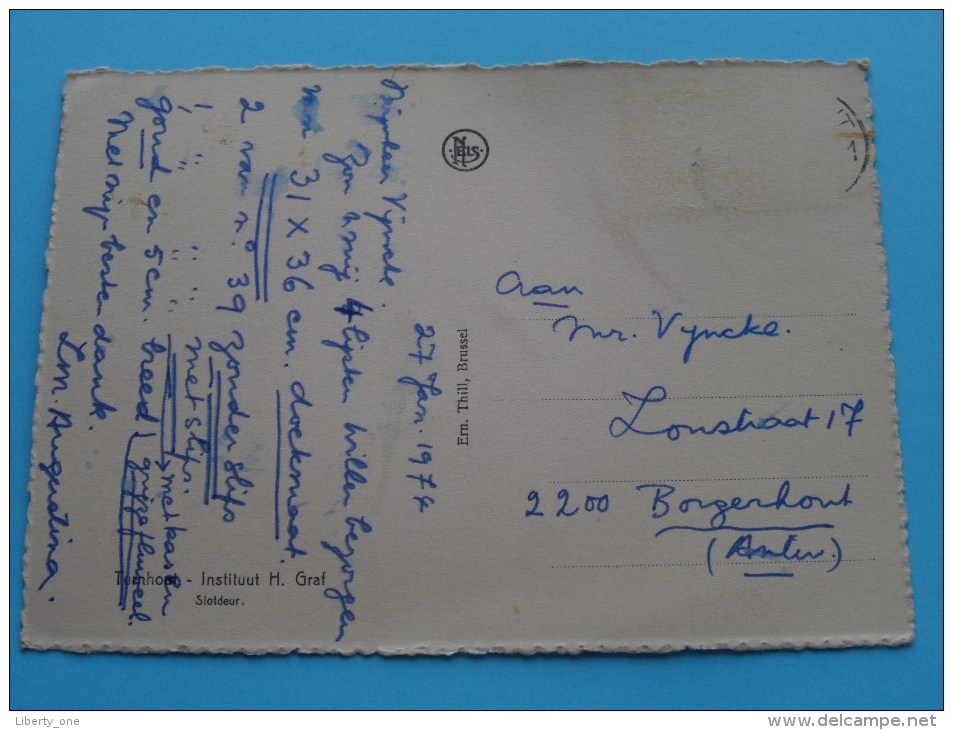 27 Jan. 1974
Mijnheer Vyncke.
Zou U mij 4 lijsten willen bezorgen
van 31 X 36 cm. doekmaat.
2 van n° 39 zonder slips
1 " " " met slips.
goud en 5 cm. breed
grijze fluweel.
Met mijn besten dank.
Augustina.
NELS
Ern. Thill, Brussel
Turnhout - Instituut H. Graf
Slotdeur.
Aan
Mr. Vyncke.
Lonstraat 17
2200 Borgerhout
(Antw.)
Liberty_one
www.delcampe.net